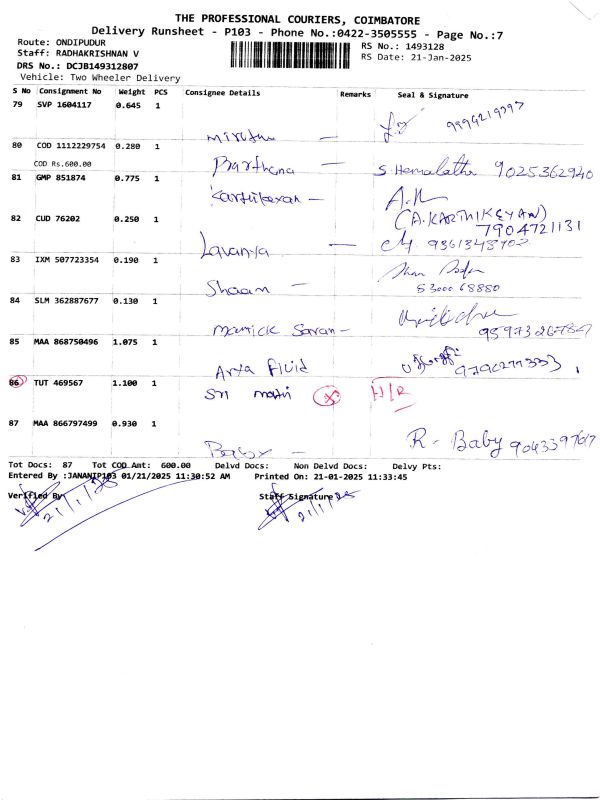 THE PROFESSIONAL COURIERS, COIMBATORE
Delivery Runsheet - P103 - Phone No.:0422-3505555 - Page No.:7
Route: ONDIPUDUR
RS No.: 1493128
Staff: RADHAKRISHNAN V
RS Date: 21-Jan-2025
DRS No.: DCJB149312807
Vehicle: Two Wheeler Delivery
S No Consignment No Weight PCS Consignee Details Remarks Seal & Signature
79 SVP 1604117 0.645 1
80 COD 1112229754 0.280 1
COD Rs.600.00 Prarthana — S. Hemalatha 9025362940
81 GMP 851874 0.775 1
Karthikeyan —
(A.KARTHIKEYAN)
82 CUD 76202 0.250 1 7904721131
Lavanya —
83 IXM 507723354 0.190 1
Shaam —
84 SLM 362887677 0.130 1
85 MAA 868750496 1.075 1
Arta fluid
86 TUT 469567 1.100 1 Sri H/R
87 MAA 866797499 0.930 1
Baby — R. Baby
Tot Docs: 87 Tot COD Amt: 600.00 Delvd Docs: Non Delvd Docs: Delvy Pts:
Entered By :JANANIP103 01/21/2025 11:30:52 AM Printed On: 21-01-2025 11:33:45
Verified By Staff Signature
21/1/25 21/1/25